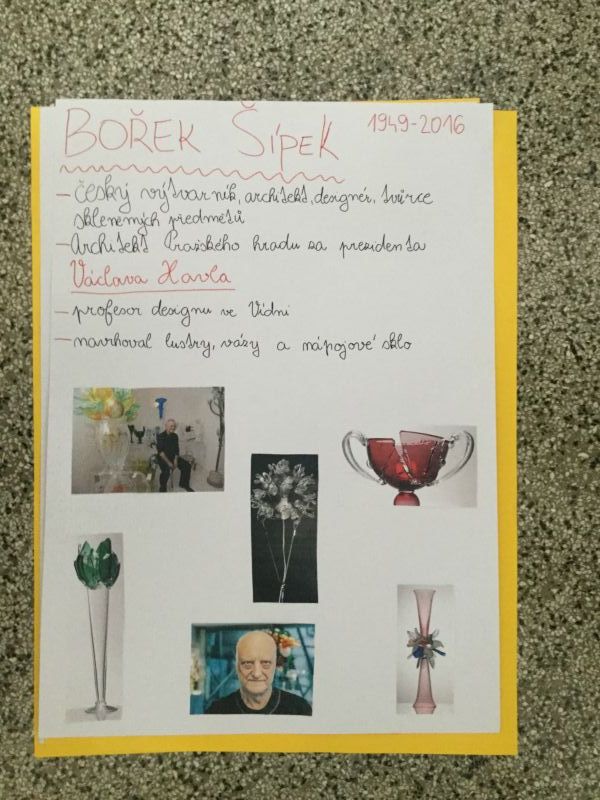 BOŘEK ŠÍPEK 1949-2016
- český výtvarník, architekt, designér, tvůrce
skleněných předmětů
- Architekt Pražského hradu za prezidenta
Václava Havla
- profesor designu ve Vídni
- navrhoval lustry, vázy a nápojové sklo